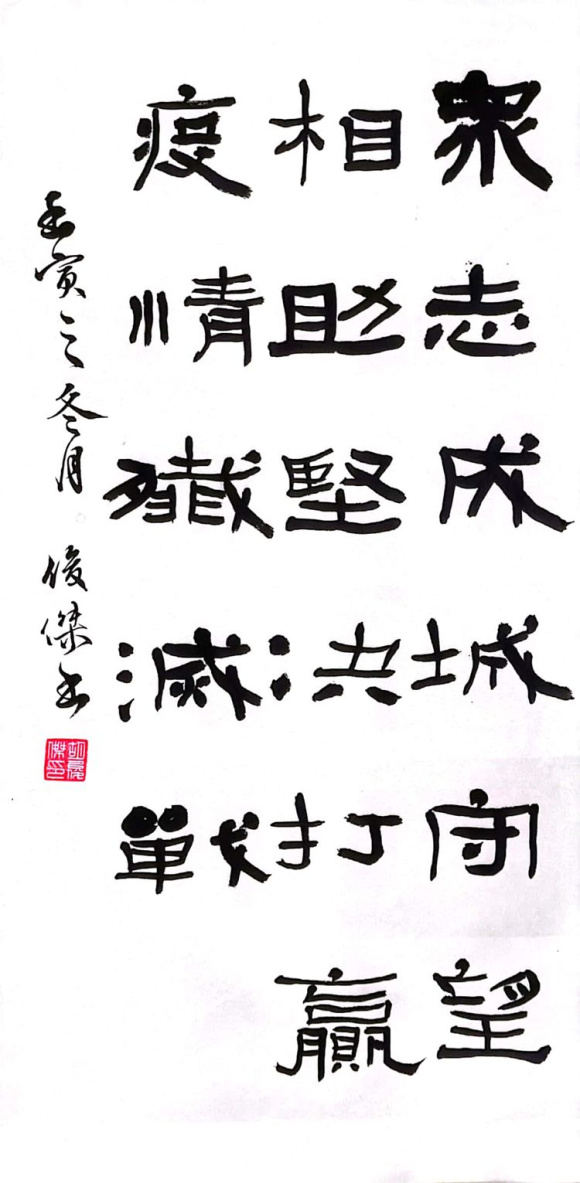 眾志成城守望
相助堅決打贏
疫情殲滅戰
壬寅之冬月 俊傑書